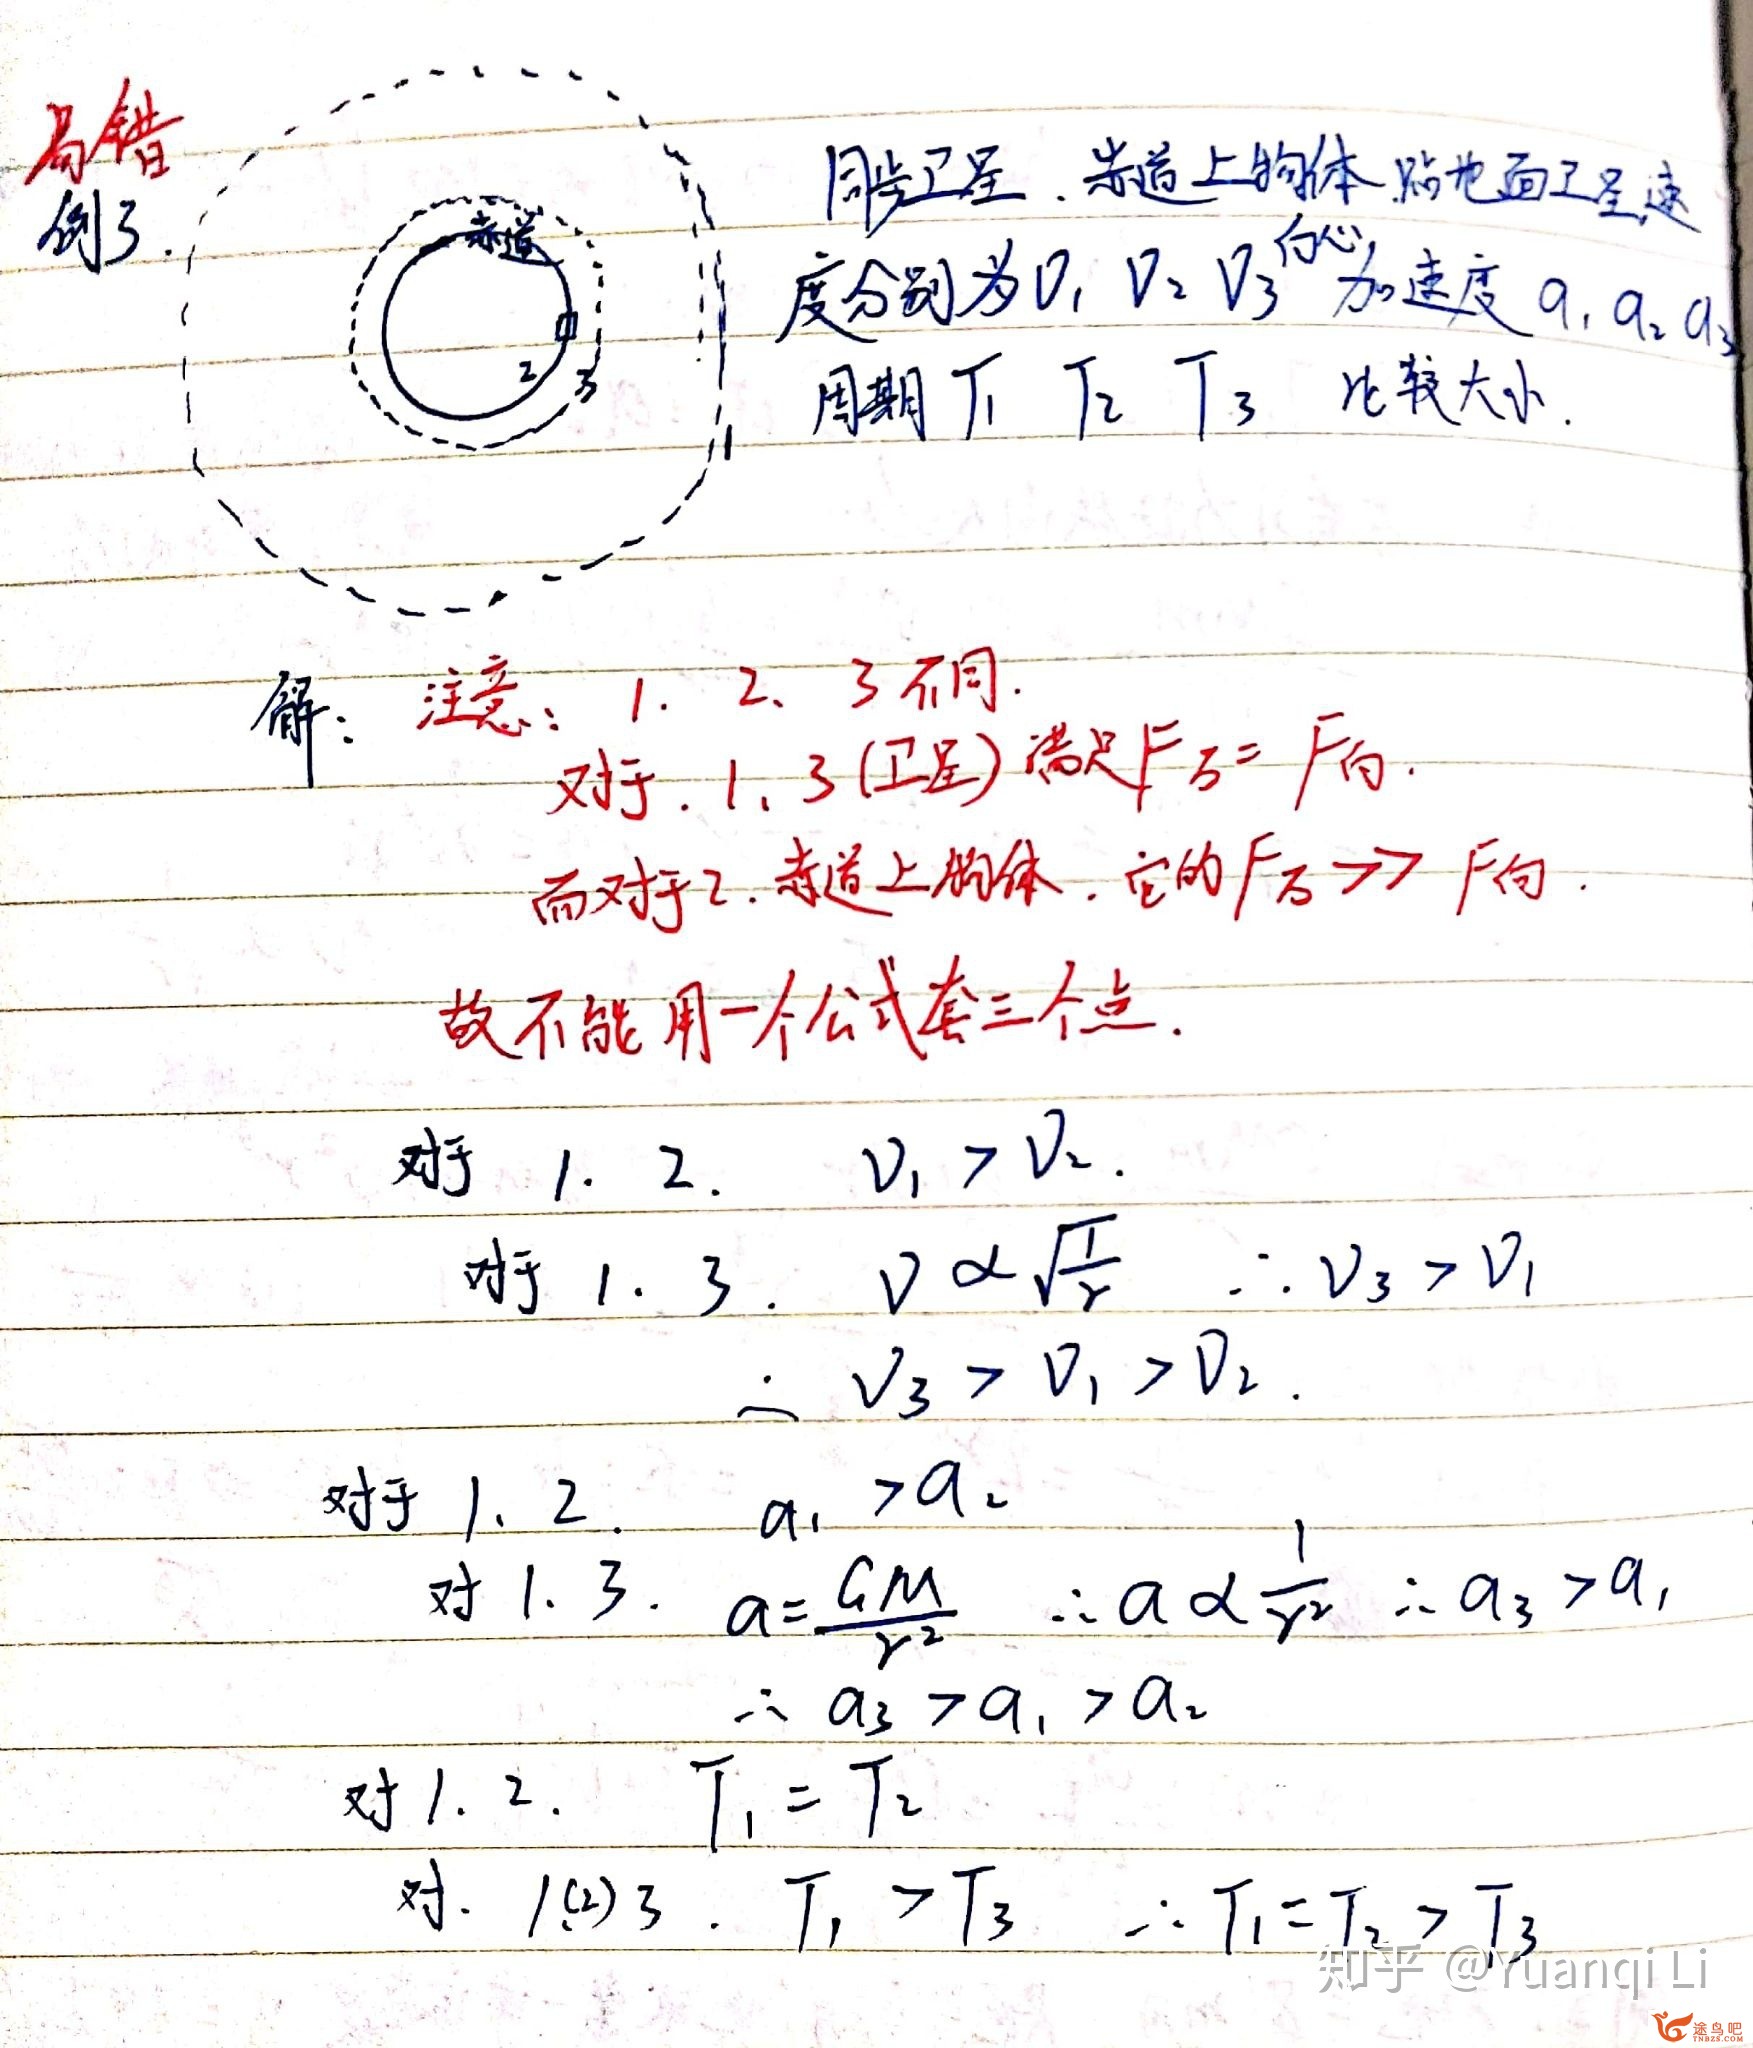 易错
例3.
赤道
2 3
1
同步卫星、赤道上物体、贴地面卫星速
度分别为V₁ V₂ V₃ 向心加速度 a₁ a₂ a₃
周期 T₁ T₂ T₃ 比较大小.
解: 注意: 1. 2、3不同.
对于. 1、3(卫星) 满足F万=F向.
而对于2. 赤道上物体. 它的F万>>F向.
故不能用一个公式套三个点.
对于 1. 2. V₁ > V₂.
对于 1. 3. V ∝ √(1/r) ∴ V₃ > V₁
∴ V₃ > V₁ > V₂.
对于 1. 2. a₁ > a₂
对 1. 3. a = GM/r² ∴ a ∝ 1/r² ∴ a₃ > a₁
∴ a₃ > a₁ > a₂
对 1. 2. T₁ = T₂
对. 1(2) 3. T₁ > T₃ ∴ T₁ = T₂ > T₃
知乎 @Yuanqi Li
途鸟吧
TNBZS.COM